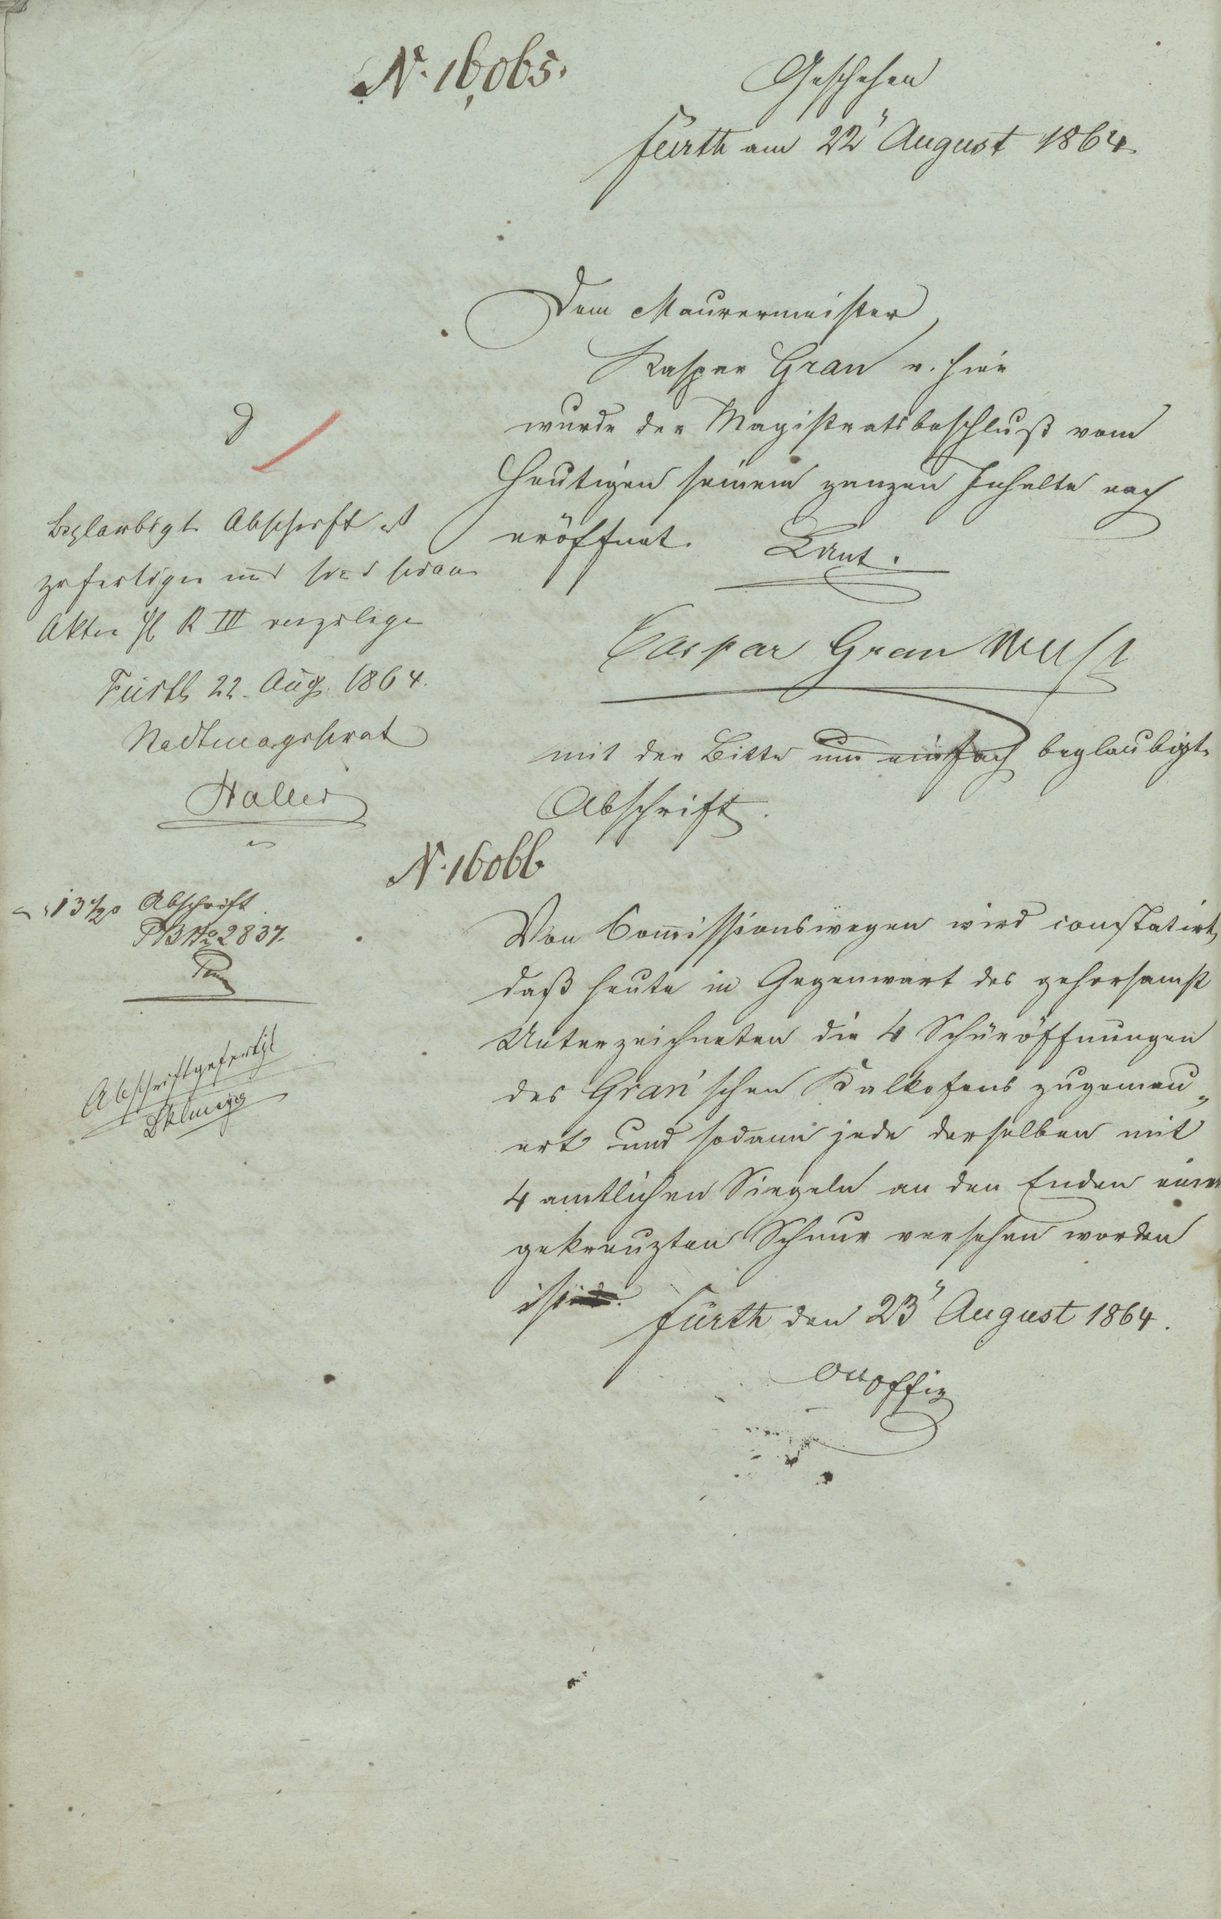 N. 16,065.
Geschehen
Fürth am 22" August 1864.
Dem Maurermeister
Kaspar Gran v. hier
wurde der Magistratsbeschluß vom
Heutigen seinem ganzen Inhalte nach
eröffnet.
Caspar Gran
mit der Bitte um einfach beglaubigte
Abschrift.
Abschrift ist
zu fertigen und
Akten R III
Fürth 22. Aug. 1864.
Stadtmagistrat
Haller
Abschrift
No 2837.
Abschrift gefertigt
N. 16066
Von Commissionswegen wird constatirt,
daß heute in Gegenwart des gehorsamst
Unterzeichneten die 4 Schüröffnungen
des Gran'schen Kalkofens zugemau„
ert und sodann jede derselben mit
4 amtlichen Siegeln an den Enden einer
gekreuzten Schnur versehen worden
ist.
Fürth den 23" August 1864.